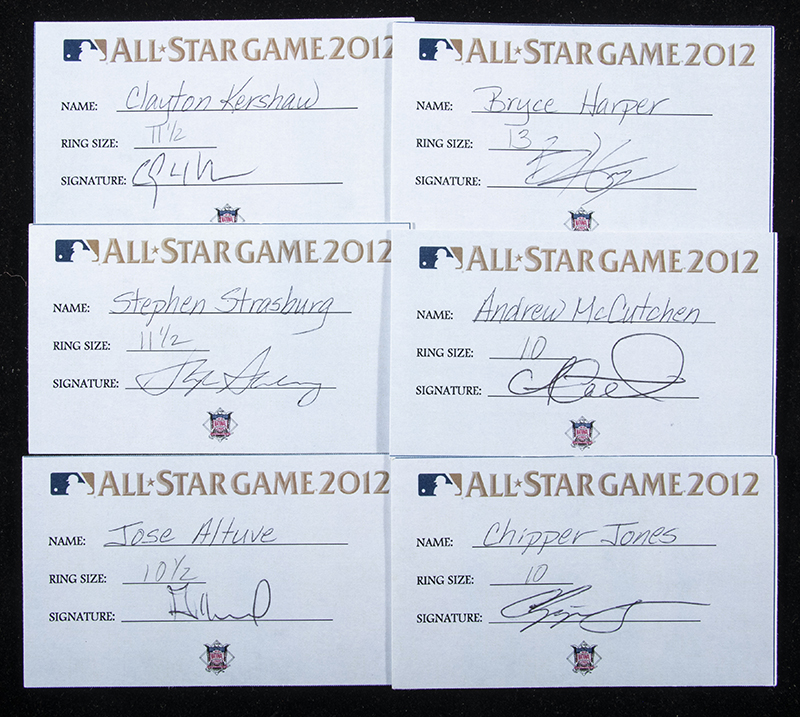 ALL★STAR GAME 2012
NAME: Clayton Kershaw
RING SIZE: 11 1/2
SIGNATURE:
ALL★STAR GAME 2012
NAME: Bryce Harper
RING SIZE: 13
SIGNATURE:
ALL★STAR GAME 2012
NAME: Stephen Strasburg
RING SIZE: 11 1/2
SIGNATURE:
ALL★STAR GAME 2012
NAME: Andrew McCutchen
RING SIZE: 10
SIGNATURE:
ALL★STAR GAME 2012
NAME: Jose Altuve
RING SIZE: 10 1/2
SIGNATURE:
ALL★STAR GAME 2012
NAME: Chipper Jones
RING SIZE: 10
SIGNATURE: